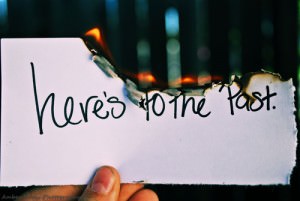 here's to the past.